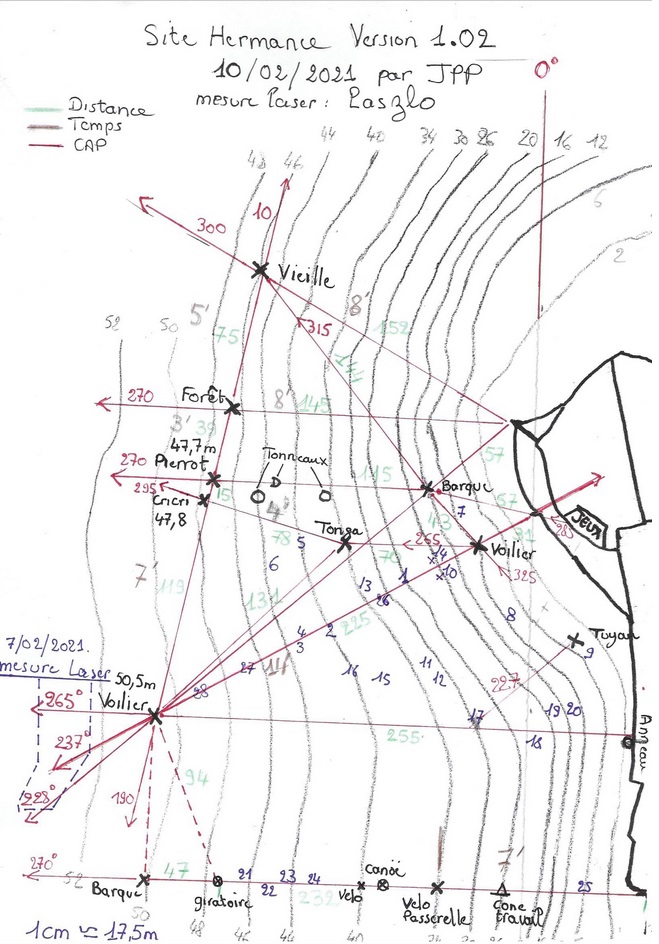 Site Hermance Version 1.02
10/02/2021 par JPP
mesure laser : Laszlo
Distance
Temps
CAP
0°
48 46 44 40 34 30 26 20 16 12
6
2
10
300
Vieille
5'
8'
315
152
52
50
75
144
Forêt
270
8'
145
3'
39
57
47,7m
Tonneaux
270
Pierrot
D
115
Barque
295
15
57
Cricri
47,8
4'
7
43
31
JEUX
285
Tonga
78
5
265
14
Voilier
6
70
10
325
7'
119
131
13
1
26
225
8
7/02/2021.
mesure laser
4
2
3
Tuyau
9
50,5m
27
14'
16
15
11
12
227
Voilier
28
265°
17
19
20
237°
255
18
Anneau
228°
190
94
270°
7'
52
47
21
22
23
24
Canoë
25
Barque
giratoire
232
Velo
Velo
Passerelle
Cone
travail
50
48
46
44
40
1cm ≃ 17,5m